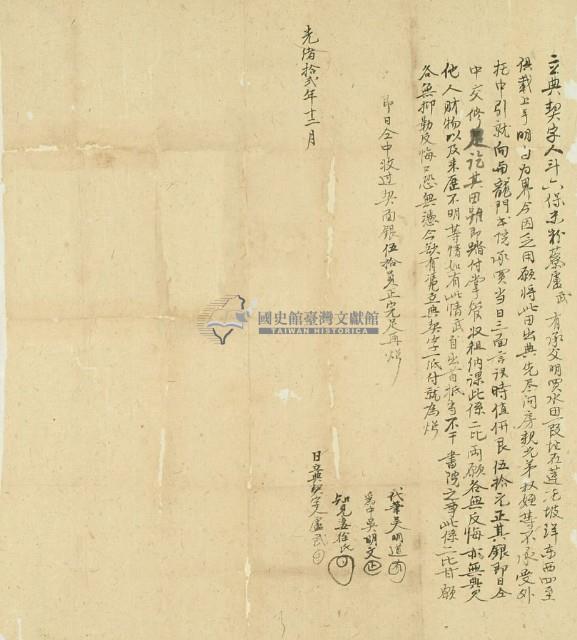 立典契字人斗六保朱粉蔡盧武有承父明買水田一段址在蓮花坡洋東西四至
俱載上手明白為界今因乏用願將此田出典先尽问房親兄弟叔姪等不承受外
托中引就向與龍門書院承買當日三面言議時值價艮伍拾元正其銀即日仝
中交修足讫其田雖即踏付掌管收租納課此係二比兩願各無反悔亦無典
他人財物以及来歷不明等情如有此情武自出首抵當不干書院之事此係二比甘願
各無抑勒反悔口恐無憑今欲有憑立典契字一紙付就為炤
即日仝中收过契面銀伍拾員正完足再炤
光緒拾弍年十二月
代筆吴明道
為中吳明文
知見妻徐氏
日立典契字人盧武
國史館臺灣文獻館
TAIWAN HISTORICA